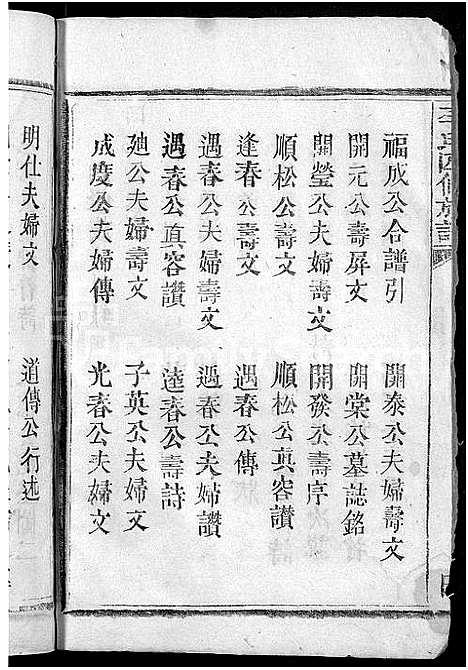 福成公合譜引　開泰公夫婦壽文
開元公壽屏文　開棠公墓誌銘
開瑩公夫婦壽文　開發公壽序
順松公壽文　順松公真容讚
逢春公壽文　遇春公傳
遇春公夫婦壽文　遇春公夫婦讚
遇春公真容讚　達春公壽詩
廸公夫婦壽文　子英公夫婦文
成度公夫婦傳　光春公夫婦文
明仕夫婦文　道傳公行述